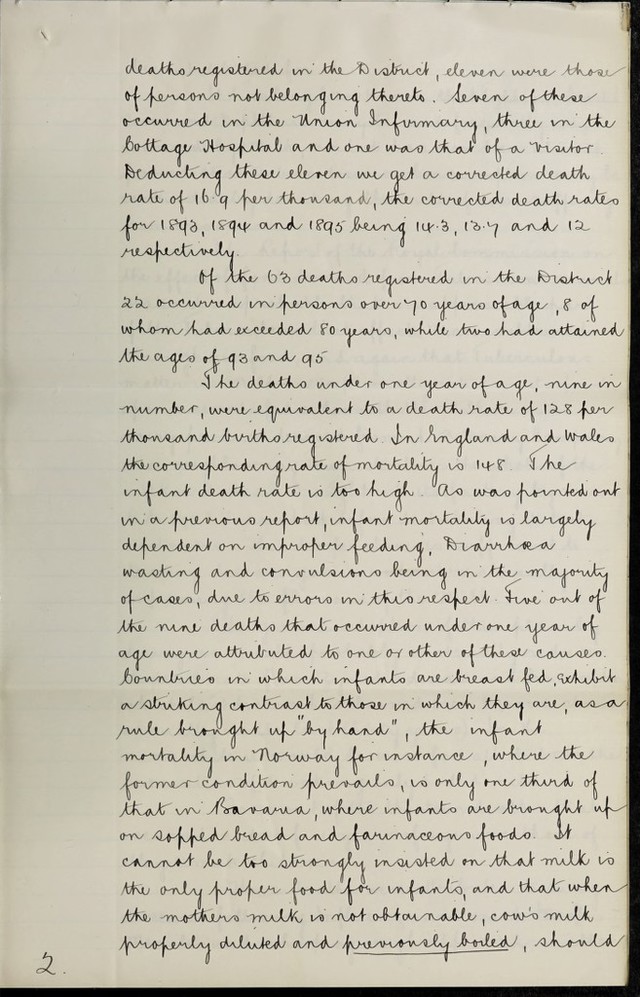 deaths registered in the District, eleven were those
of persons not belonging thereto. Seven of these
occurred in the Union Infirmary, three in the
Cottage Hospital and one was that of a visitor.
Deducting these eleven we get a corrected death
rate of 16.9 per thousand, the corrected death rates
for 1893, 1894 and 1895 being 14.3, 13.7 and 12
respectively.
Of the 63 deaths registered in the District
22 occurred in persons over 70 years of age, 8 of
whom had exceeded 80 years, while two had attained
the ages of 93 and 95
The deaths under one year of age, nine in
number, were equivalent to a death rate of 128 per
thousand births registered. In England and Wales
the corresponding rate of mortality is 148. The
infant death rate is too high. As was pointed out
in a previous report, infant mortality is largely
dependent on improper feeding, Diarrhœa
wasting and convulsions being in the majority
of cases, due to errors in this respect. Five out of
the nine deaths that occurred under one year of
age were attributed to one or other of these causes.
Countries in which infants are breast fed, exhibit
a striking contrast to those in which they are, as a
rule brought up "by hand", the infant
mortality in Norway for instance, where the
former condition prevails, is only one third of
that in Bavaria, where infants are brought up
on sopped bread and farinaceous foods. It
cannot be too strongly insisted on that milk is
the only proper food for infants, and that when
the mothers milk is not obtainable, cow's milk
properly diluted and previously boiled, should
2.